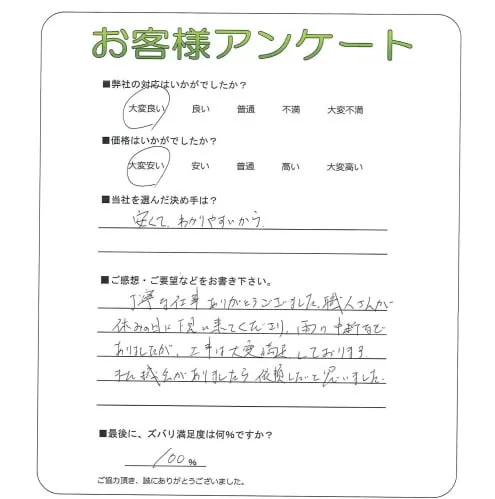 お客様アンケート
■弊社の対応はいかがでしたか？
大変良い 良い 普通 不満 大変不満
■価格はいかがでしたか？
大変安い 安い 普通 高い 大変高い
■当社を選んだ決め手は？
安くて、わかりやすいから
■ご感想・ご要望などをお書き下さい。
丁寧な仕事ありがとうございました。職人さんが
休みの日に見に来てくださり、雨の中断も
ありましたが、工事は大変満足しております。
また機会がありましたら依頼したいと思いました。
■最後に、ズバリ満足度は何％ですか？
100%
ご協力頂き、誠にありがとうございました。